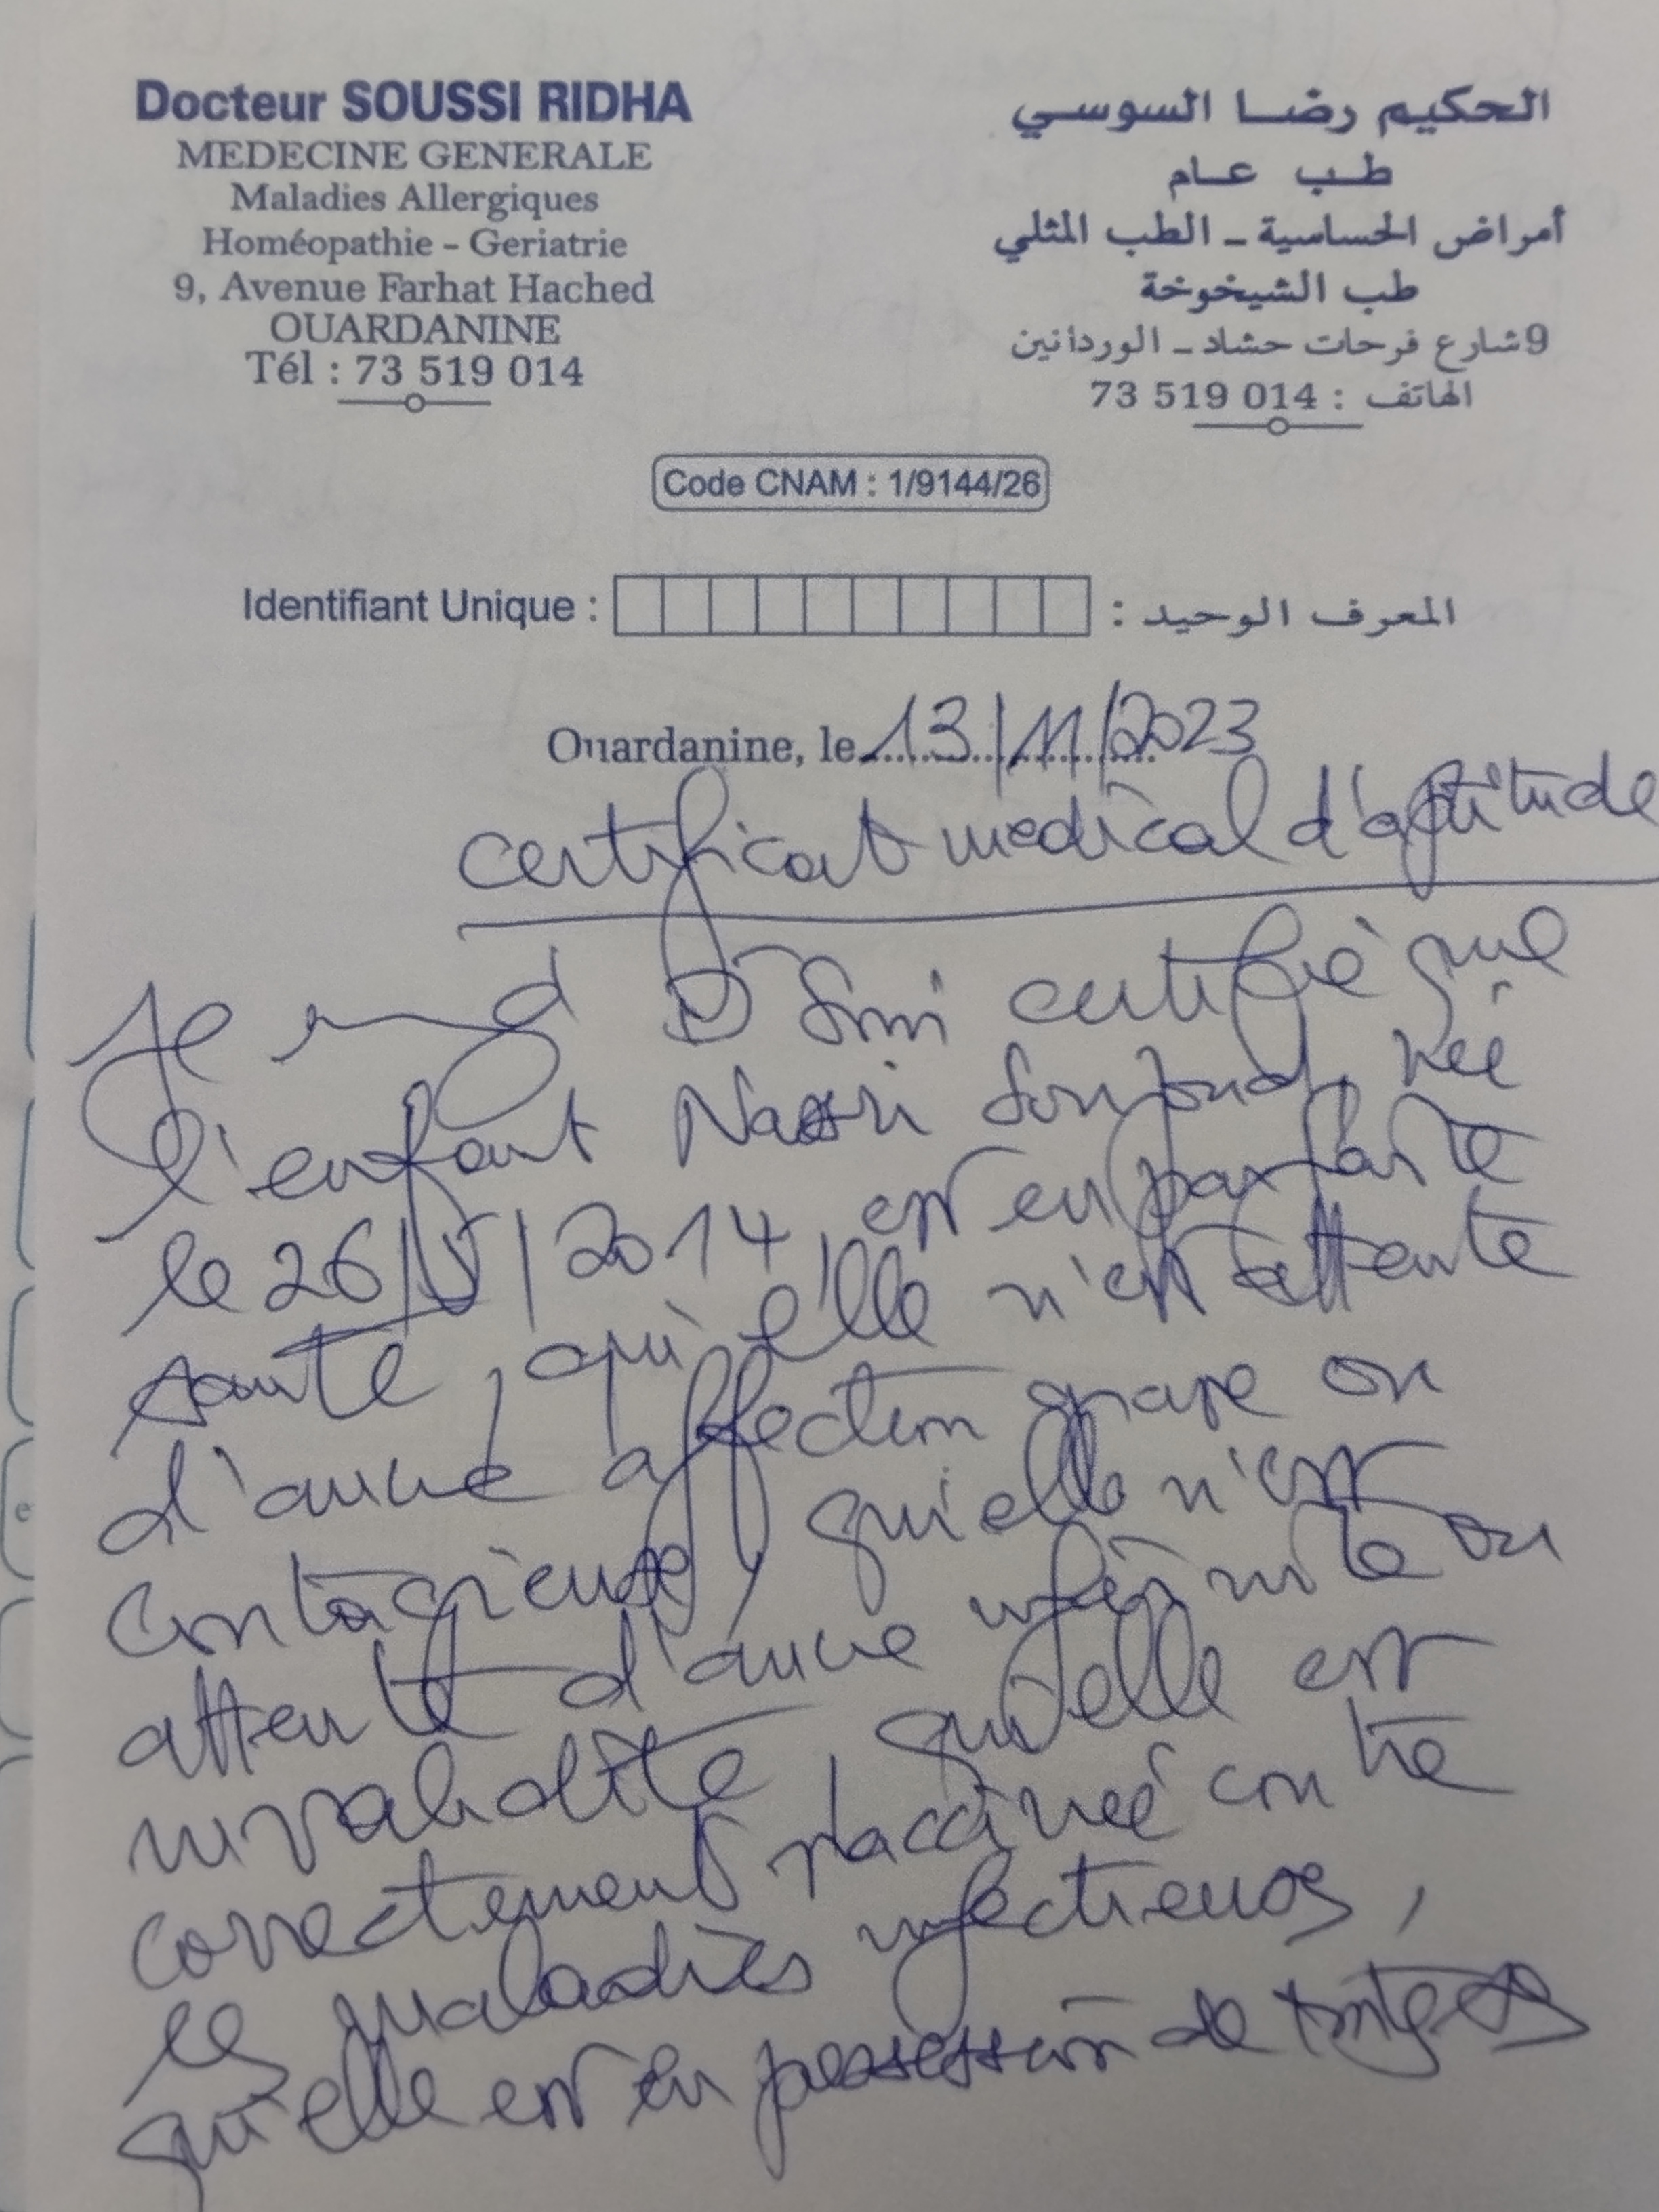 Docteur SOUSSI RIDHA
MEDECINE GENERALE
Maladies Allergiques
Homéopathie - Geriatrie
9, Avenue Farhat Hached
OUARDANINE
Tél : 73 519 014
الحكيم رضا السوسي
طب عام
أمراض الحساسية - الطب المثلي
طب الشيخوخة
9 شارع فرحات حشاد - الوردانين
الهاتف : 014 519 73
Code CNAM : 1/9144/26
Identifiant Unique : المعرف الوحيد :
Ouardanine, le 13/11/2023
certificat medical d'aptitude
Je certifie que
l'enfant née
le 26/5/2014, est en parfaite
santé, qu'elle n'est attente
d'aucune affection grave ou
contagieuse, qu'elle n'est
attente d'aucune infirmité ou
invalidité, qu'elle est
correctement vaccinée contre
les maladies infectieuses,
qu'elle est en possession de